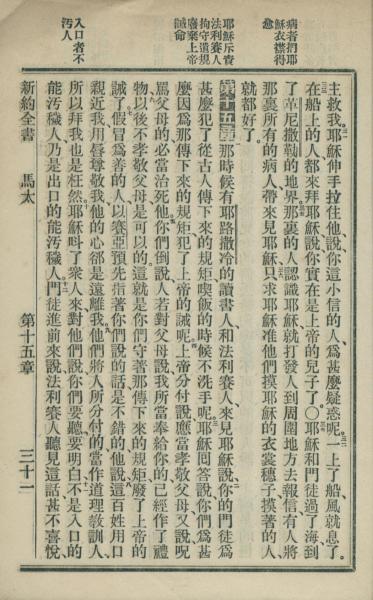 病者捫耶
穌衣襟得
愈
耶穌斥責
法利賽人
拘守遺規
廢棄上帝
誡命
入口者不
汚人
主救我耶穌伸手拉住他說你這小信的人爲甚麼疑惑呢一上了船風就息了
在船上的人都來拜耶穌說你實在是上帝的兒子了〇耶穌和門徒過了海到
了革尼撒勒的地界那裏的人認識耶穌就打發人到周圍地方去報信有人將
那裏所有的病人帶來見耶穌只求耶穌准他們摸耶穌的衣裳穗子摸著的人
就都好了
第十五章那時候有耶路撒冷的讀書人和法利賽人來見耶穌說你的門徒爲
甚麼犯了從古人傳下來的規矩喫飯的時候不洗手呢耶穌回答說你們爲甚
麼因爲那傳下來的規矩犯了上帝的誡呢上帝分付說應當孝敬父母又說咒
罵父母的必當治死他你們倒說人若對父母說我所當奉給你的已經作了禮
物以後不孝敬父母是可以的這就是你們守著那傳下來的規矩廢了上帝的
誡了假冒爲善的人以賽亞預先指著你們說的話是不錯的他說這百姓用口
親近我用唇尊敬我他的心郤是遠離我他們將人所分付的當作道理敎訓人
所以拜我也是枉然耶穌呌了衆人來對他們說你們要聽要明白不是入口的
能汚穢人乃是出口的能汚穢人門徒進前來說法利賽人聽見這話甚不喜悅
新約全書 馬太 第十五章 三十一